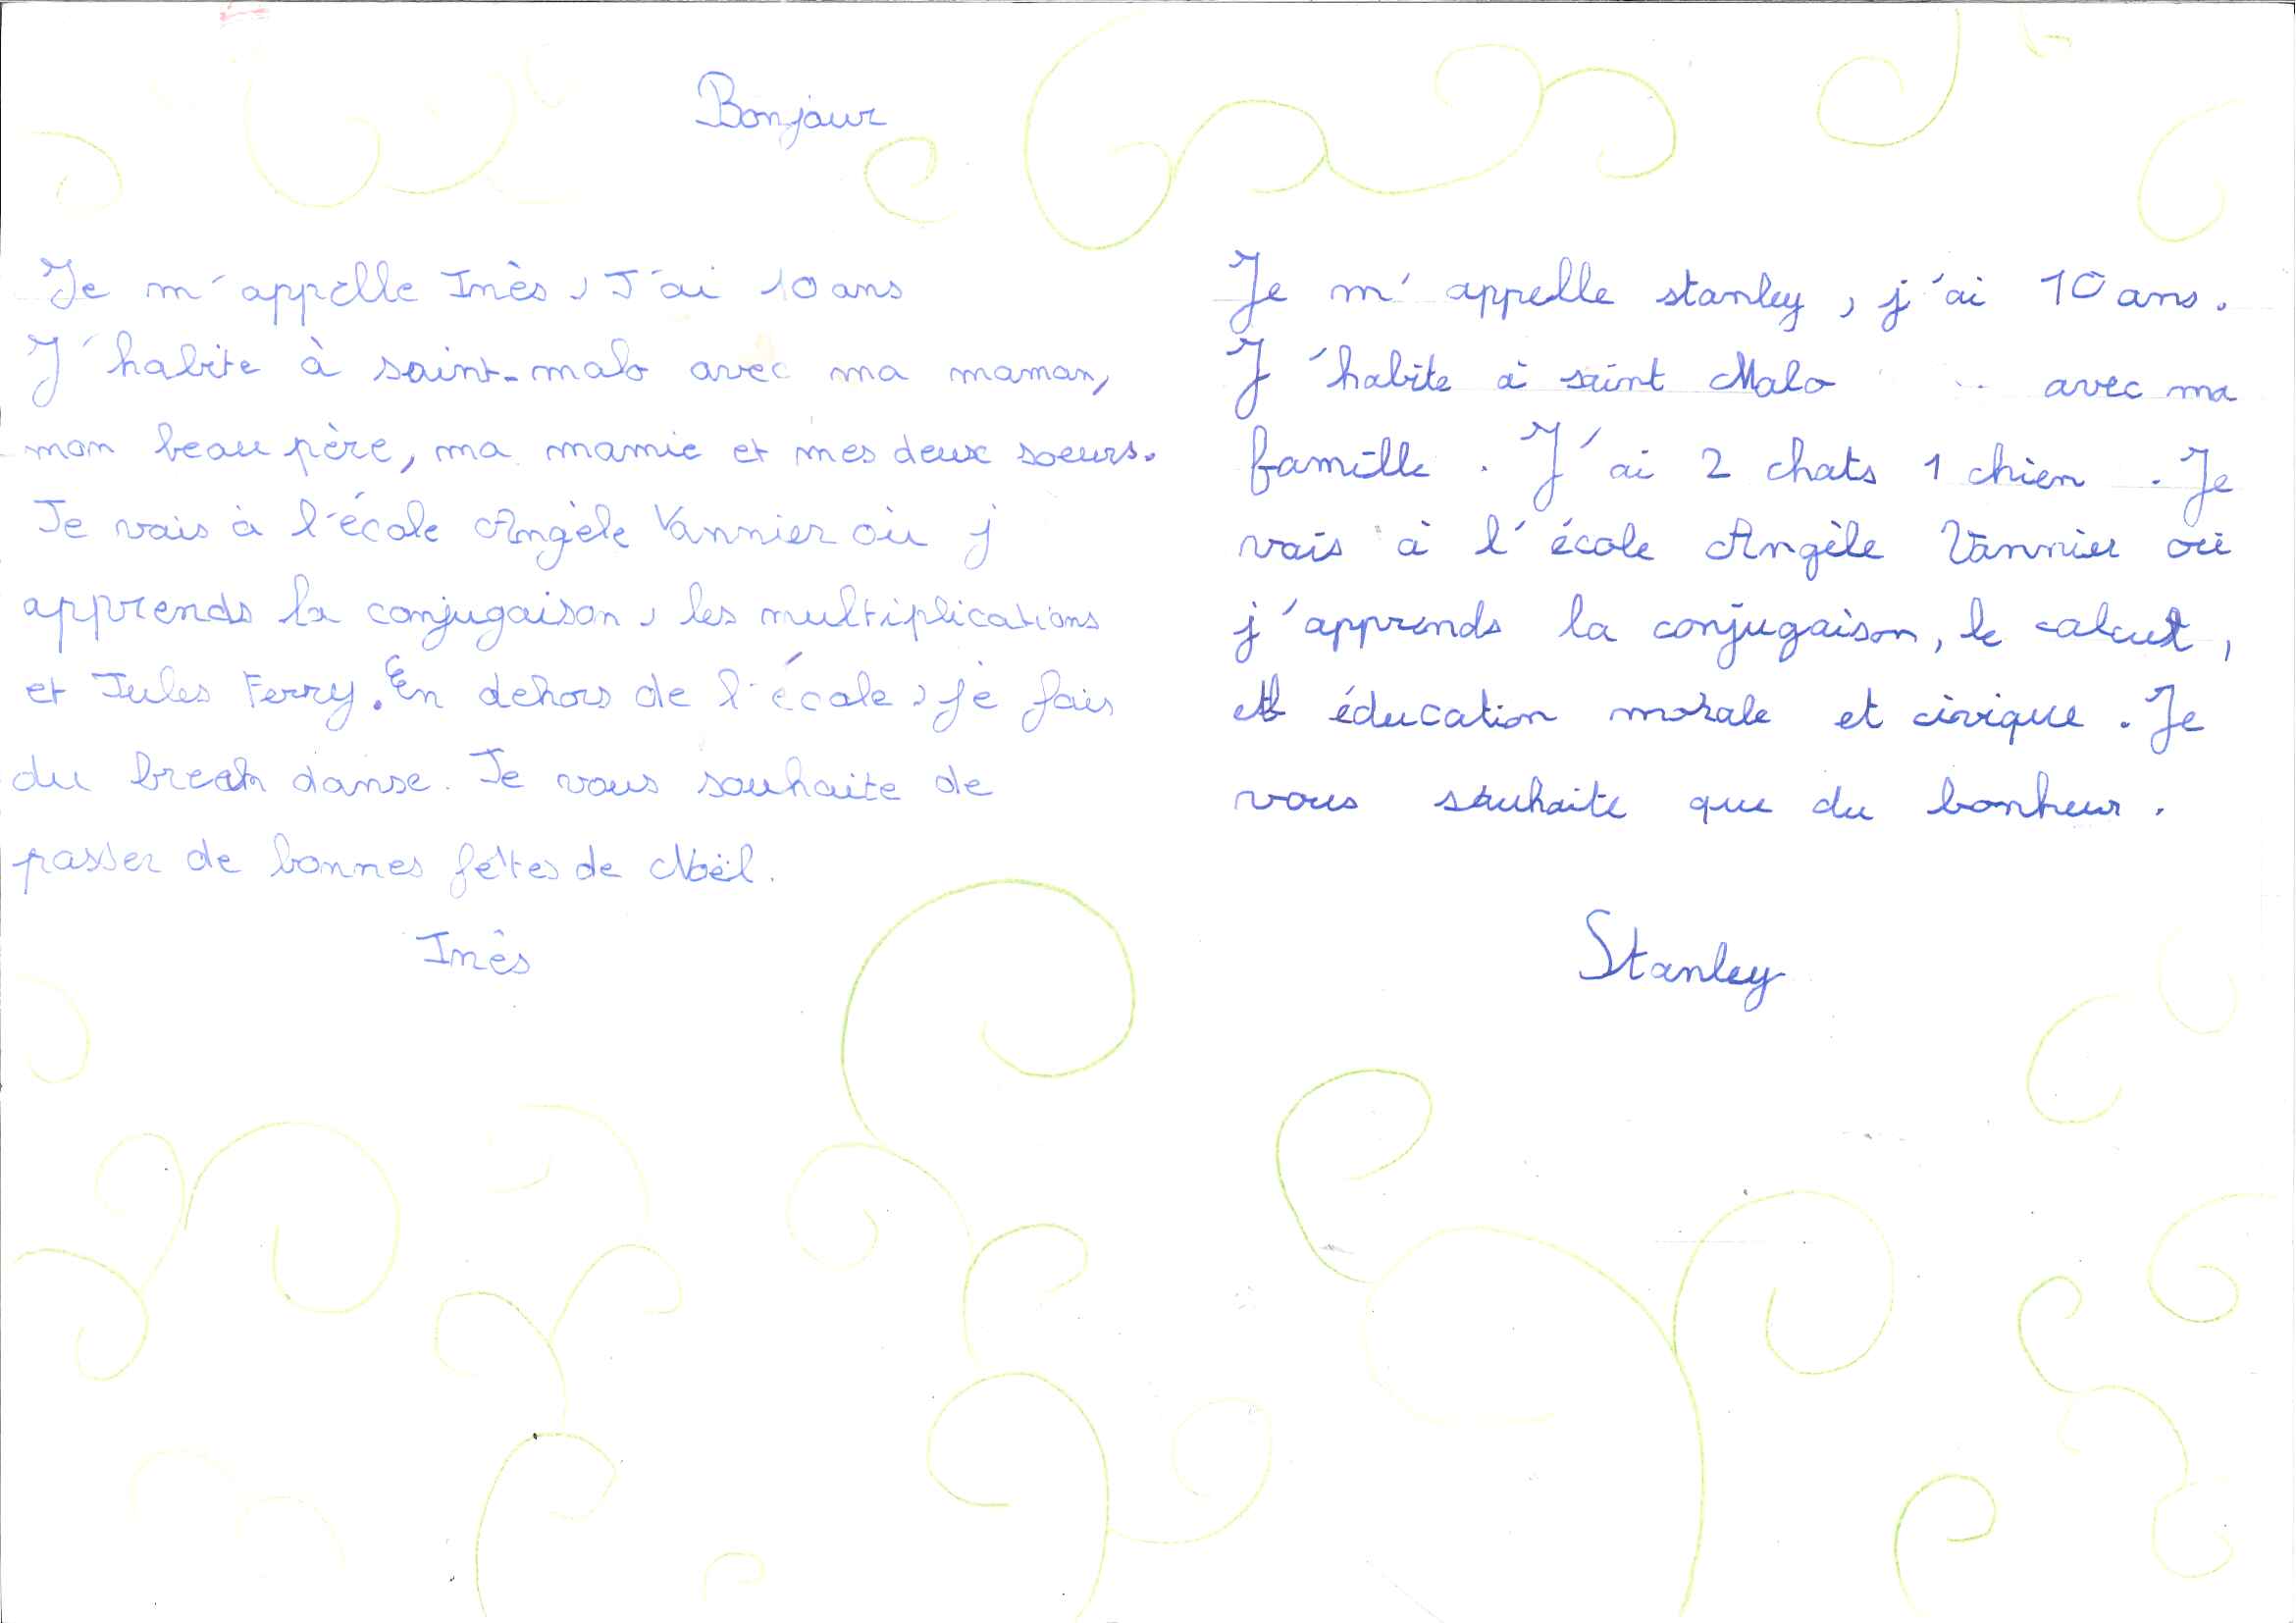 Bonjour
Je m'appelle Inès, J'ai 10 ans
J'habite à saint-malo avec ma maman,
mon beau père, ma mamie et mes deux soeurs.
Je vais à l'école Angèle Vannier où j
apprends la conjugaison, les multiplications
et Jules Ferry. En dehors de l'école, je fais
du break danse. Je vous souhaite de
passer de bonnes fêtes de Noël.
Inès
Je m'appelle stanley, j'ai 10 ans.
J'habite à saint Malo avec ma
famille. J'ai 2 chats 1 chien. Je
vais à l'école Angèle Vannier où
j'apprends la conjugaison, le calcul,
et éducation morale et civique. Je
vous souhaite que du bonheur.
Stanley